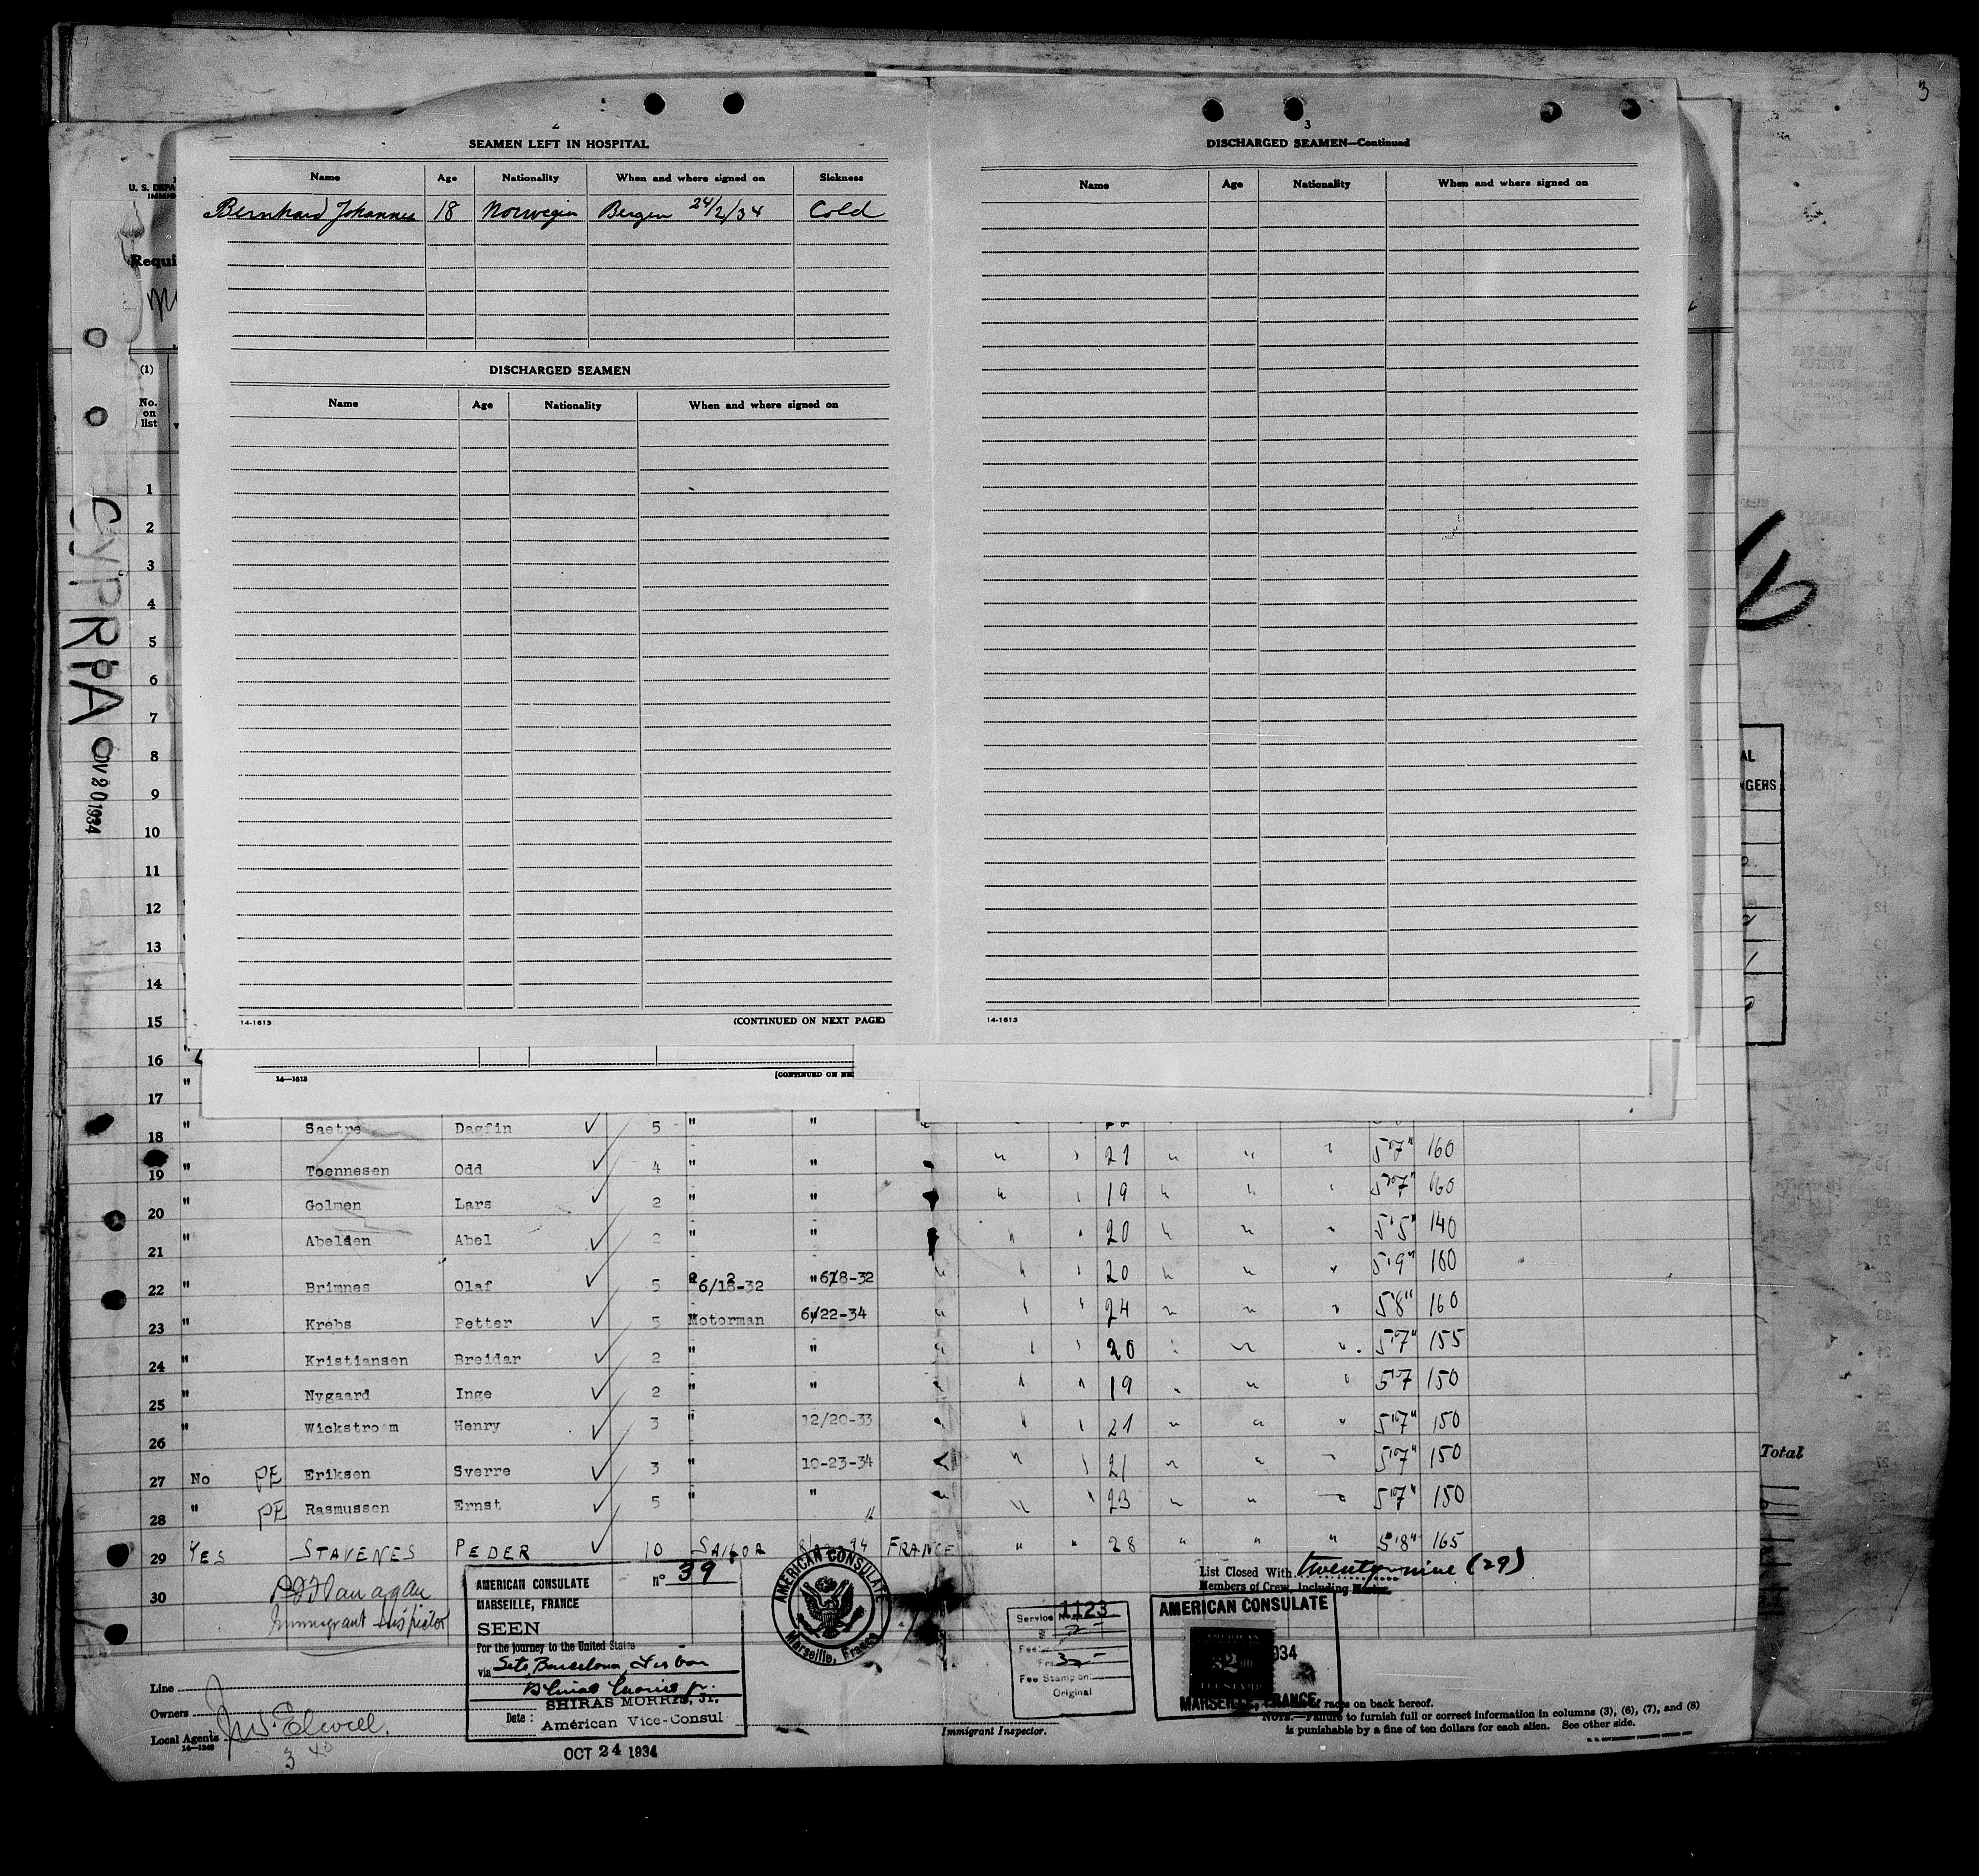 3
2
SEAMEN LEFT IN HOSPITAL
Name Age Nationality When and where signed on Sickness
Bernhard Johannes 18 Norwegin Bergen 24/2/34 Cold
DISCHARGED SEAMEN
Name Age Nationality When and where signed on
14-1613 (CONTINUED ON NEXT PAGE)
3
DISCHARGED SEAMEN—Continued
Name Age Nationality When and where signed on
14-1613
14—1613 [CONTINUED ON NE
U. S. DEPA
IMMIG
Requi
(1)
No.
on
list
CYPRIA
OV 20 1934
1
2
3
4
5
6
7
8
9
10
11
12
13
14
15
16
17 "
18 " Saetre Dagfin ✓ 5 " "
19 " Toennesen Odd ✓ 4 " " 21 5'7" 160
20 " Golmen Lars ✓ 2 " " 19 5'7" 160
21 " Abelsen Abel ✓ 2 " " 20 5'5" 140
22 " Brimnes Olaf ✓ 5 6/18-32 " 6/8-32 20 5'9" 180
23 " Krebs Petter ✓ 5 Motorman 6/22-34 24 5'8" 160
24 " Kristiansen Breidar ✓ 2 " " 20 5'7" 155
25 " Nygaard Inge ✓ 2 " " 19 5'7 150
26 " Wickstroem Henry ✓ 3 " 12/20-33 21 5'7" 150
27 No PE Eriksen Sverre ✓ 3 " 10-23-34 21 5'7" 150
28 " PE Rasmussen Ernst ✓ 5 " " 23 5'7" 150
29 YES STAVENES PEDER ✓ 10 SAILOR FRANCE " " 28 " " " 5'8" 165
30
Immigrant Inspector
List Closed With twenty-nine (29)
Members of Crew, Including Master.
AMERICAN CONSULATE No 39
MARSEILLE, FRANCE
SEEN
For the journey to the United States
via Sete, Barcelona, Lisbon
SHIRAS MORRIS, Jr.
Date: American Vice-Consul
OCT 24 1934
AMERICAN CONSULATE
Marseille, France
Service No. 1123
Fee Stamp on
Original
AMERICAN CONSULATE
934
MARSEILLE, FRANCE
Line
Owners
Local Agents J.W. Elwell
Immigrant Inspector.
of races on back hereof.
NOTE.—Failure to furnish full or correct information in columns (3), (6), (7), and (8)
is punishable by a fine of ten dollars for each alien. See other side.
AL
NGERS
Total